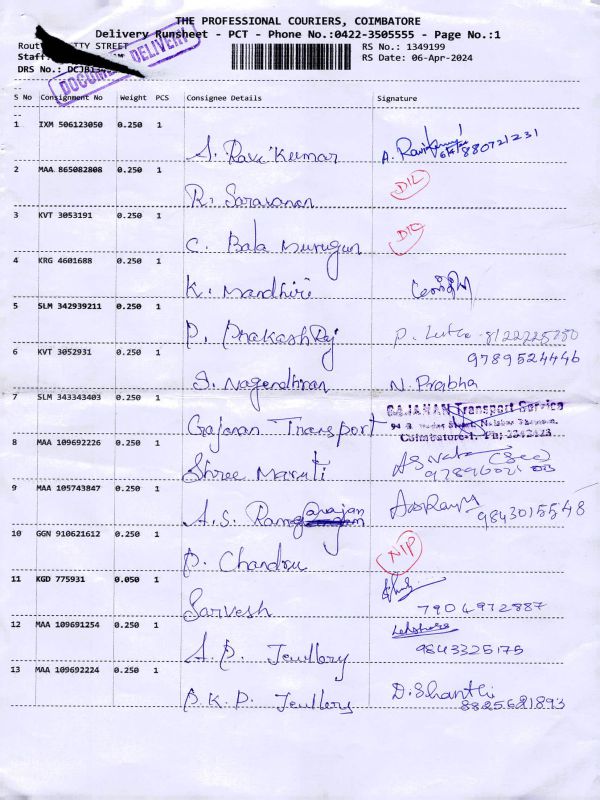 THE PROFESSIONAL COURIERS, COIMBATORE
Delivery Runsheet - PCT - Phone No.:0422-3505555 - Page No.:1
STREET
RS No.: 1349199
Staff:
RS Date: 06-Apr-2024
DRS No.:
DOCUMENT DELIVERY
S No Consignment No Weight PCS Consignee Details Signature
1 IXM 506123050 0.250 1 A. Ravi Kumar A. Ravikumar 880721231
2 MAA 865082808 0.250 1 R. Saravanan D/L
3 KVT 3053191 0.250 1 C. Bala Murugan D/L
4 KRG 4601688 0.250 1 K. Mandhiri
5 SLM 342939211 0.250 1 P. Prakash Raj P. 8122225750
9789524446
6 KVT 3052931 0.250 1 S. Nagendhran N. Prabha
7 SLM 343343403 0.250 1 Gajanan Transport GAJANAN Transport Service
Coimbatore-1. Ph;
8 MAA 109692226 0.250 1 Shree Maruti
9 MAA 105743847 0.250 1 A.S. Rangarajan 9843015548
10 GGN 910621612 0.250 1 P. Chandru NIP
11 KGD 775931 0.050 1 Sarvesh
7904972887
12 MAA 109691254 0.250 1 A. P. Jewllery
9843325175
13 MAA 109692224 0.250 1 P. K. P. Jewllery D. Shanthi
8825621893